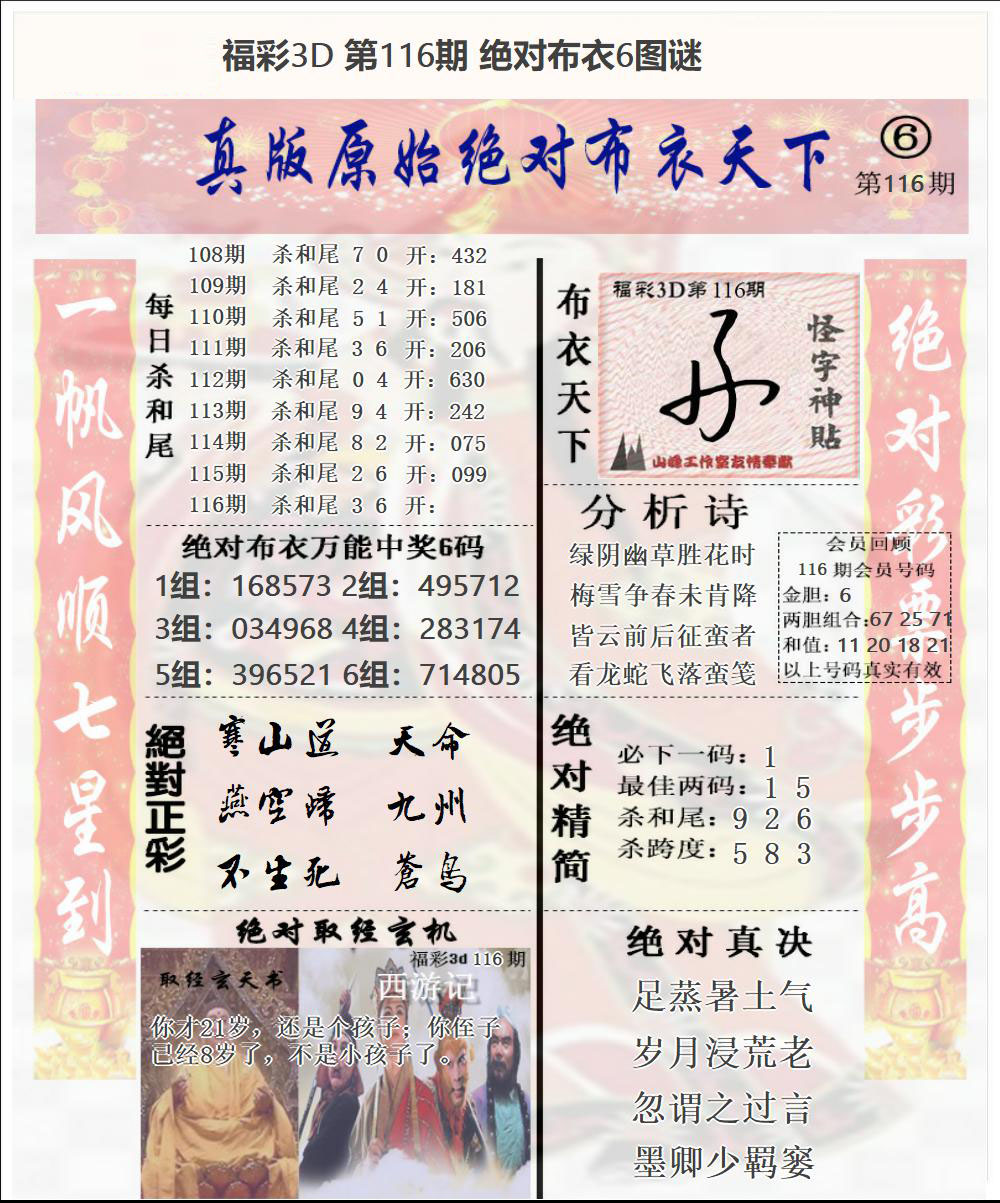 福彩3D 第116期 绝对布衣6图谜
真版原始绝对布衣天下
6
第116期
一帆风顺七星到
每日杀和尾
108期 杀和尾 7 0 开：432
109期 杀和尾 2 4 开：181
110期 杀和尾 5 1 开：506
111期 杀和尾 3 6 开：206
112期 杀和尾 0 4 开：630
113期 杀和尾 9 4 开：242
114期 杀和尾 8 2 开：075
115期 杀和尾 2 6 开：099
116期 杀和尾 3 6 开：
绝对布衣万能中奖6码
1组：168573 2组：495712
3组：034968 4组：283174
5组：396521 6组：714805
絕對正彩
寒山道 天命
燕空歸 九州
不生死 蒼鸟
绝对取经玄机
福彩3d 116期
取经玄天书
西游记
你才21岁，还是个孩子；你侄子
已经8岁了，不是小孩子了。
布衣天下
福彩3D第116期
怪字神贴
山峰工作室友情奉献
分析诗
绿阴幽草胜花时
梅雪争春未肯降
皆云前后征蛮者
看龙蛇飞落蛮笺
会员回顾
116期会员号码
金胆：6
两胆组合:67 25 71
和值：11 20 18 21
以上号码真实有效
绝对精简
必下一码：1
最佳两码：1 5
杀和尾：9 2 6
杀跨度：5 8 3
绝对真决
足蒸暑土气
岁月浸荒老
忽谓之过言
墨卿少羁窭
绝对彩票步步高